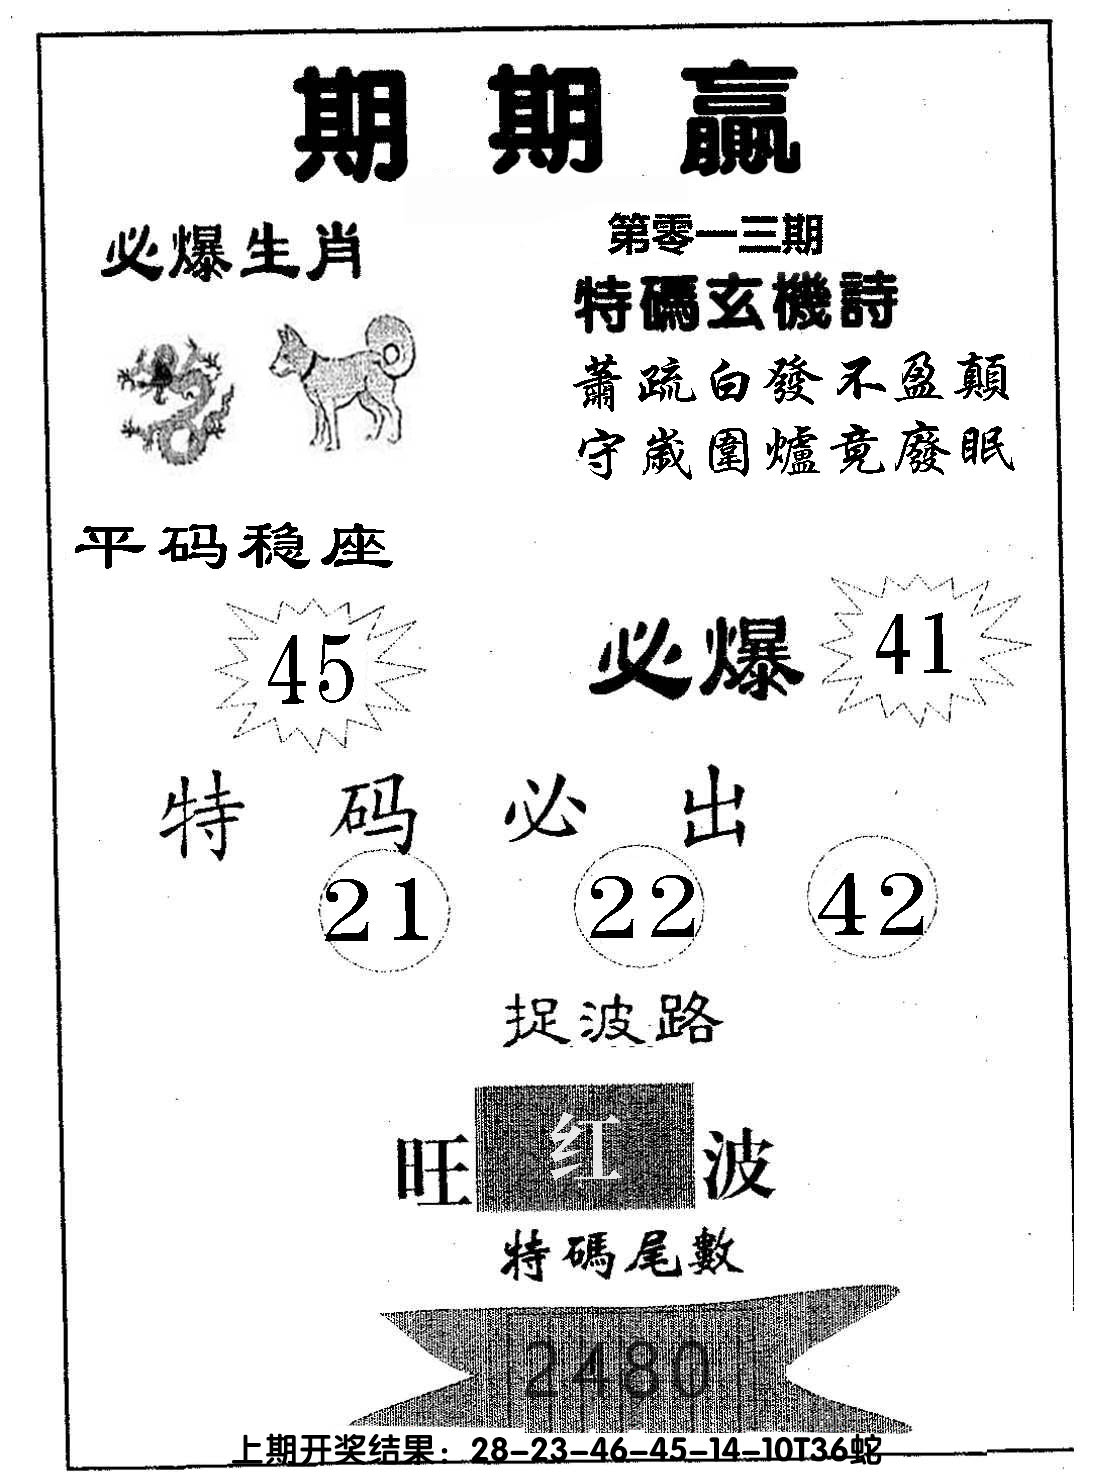 期期赢
必爆生肖
第零一三期
特碼玄機詩
蕭疏白發不盈顛
守歲圍爐竟廢眠
平码稳座
45
必爆
41
特码必出
21 22 42
捉波路
旺红波
特碼尾數
2480
上期开奖结果：28-23-46-45-14-10T36蛇